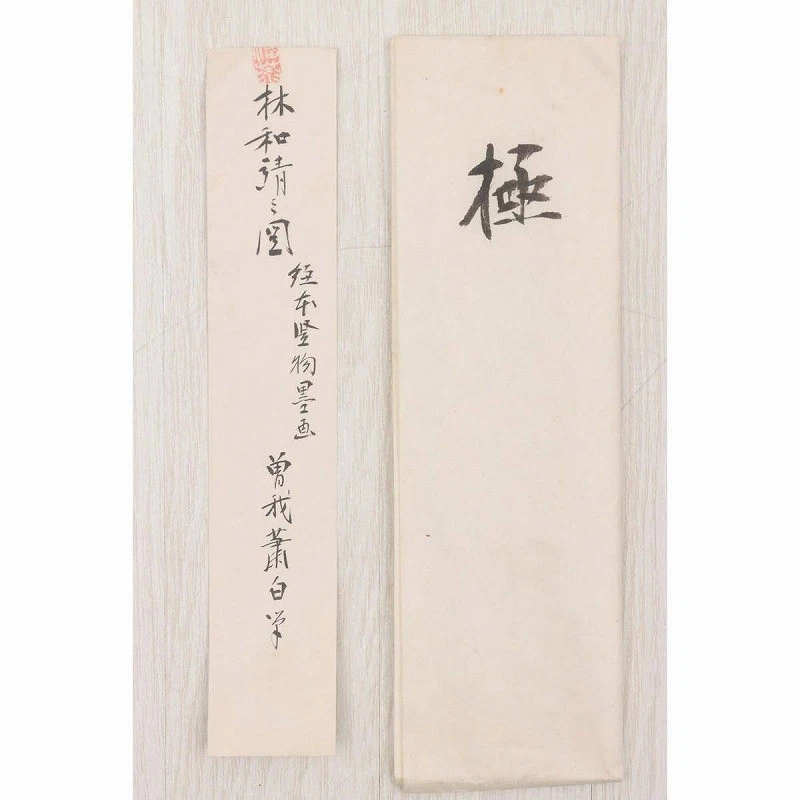 極
林和靖之図
紙本竪物墨画
曽我蕭白筆